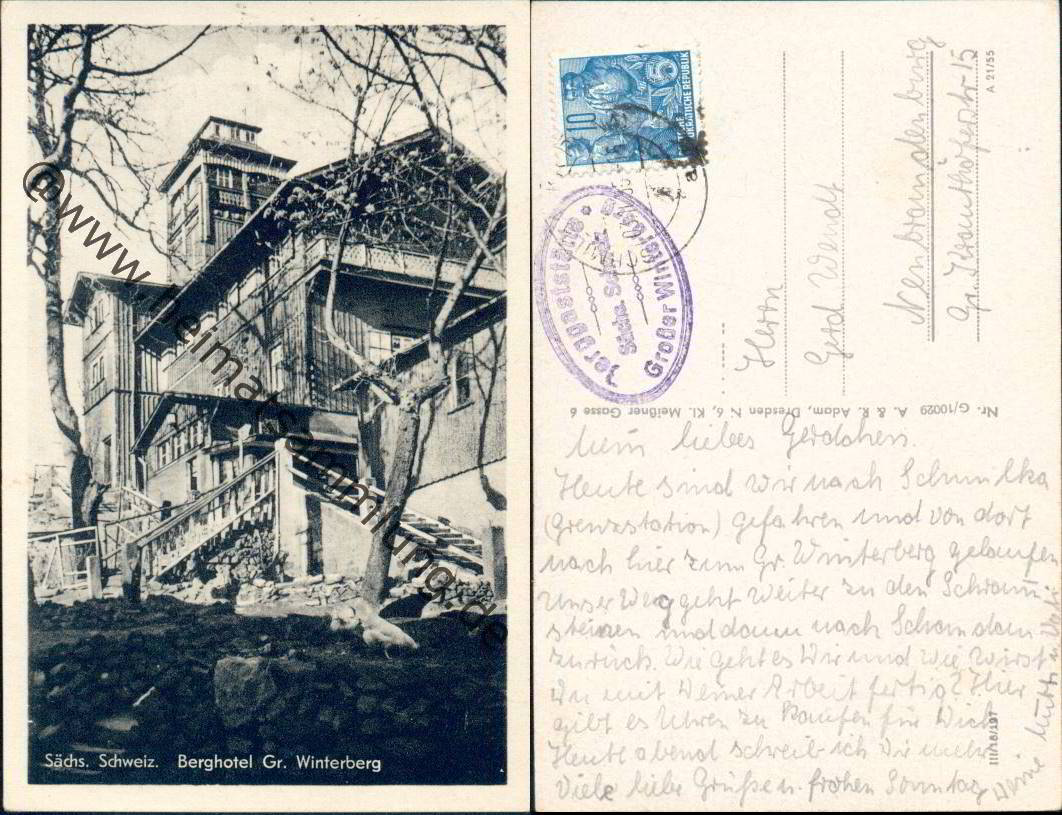 Sächs. Schweiz. Berghotel Gr. Winterberg
@www.heimatsammlung.de
5
10
DEUTSCHE DEMOKRATISCHE REPUBLIK
Berggaststätte
Sächs. Schweiz
Großer Winterberg
Herrn
Gerd Wendt
Neubrandenburg
Gr. Krauthöferstr. 15
A 21/55
Nr. G/10029 A. & R. Adam, Dresden N 6, Kl. Meißner Gasse 6
III/18/197
Mein liebes Gerdchen.
Heute sind wir nach Schmilka
(Grenzstation) gefahren und von dort
nach hier zum Gr. Winterberg gelaufen
Unser Weg geht weiter zu den Schramm
steinen und dann nach Schandau
zurück. Wie geht es Dir und wie wirst
Du mit Deiner Arbeit fertig? Hier
gibt es Uhren zu kaufen für Dich
Heute abend schreib ich Dir mehr
Viele liebe Grüße u. frohen Sonntag
Deine Mutti u. Vati